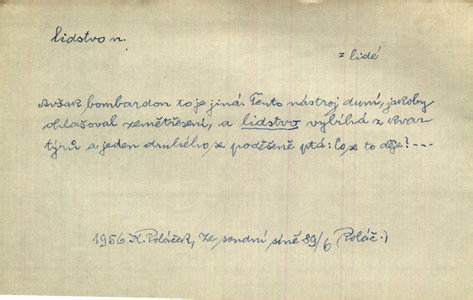 lidstvo n.
= lidé
Avšak bombardon to je jiná! Tento nástroj duní, jakoby
ohlašoval zemětřesení, a lidstvo vybíhá z kvar
týrů a jeden druhého se poděšeně ptá: Co se to děje? ---
1956 K. Poláček, Ze soudní síně 89/6 (Poláč.)